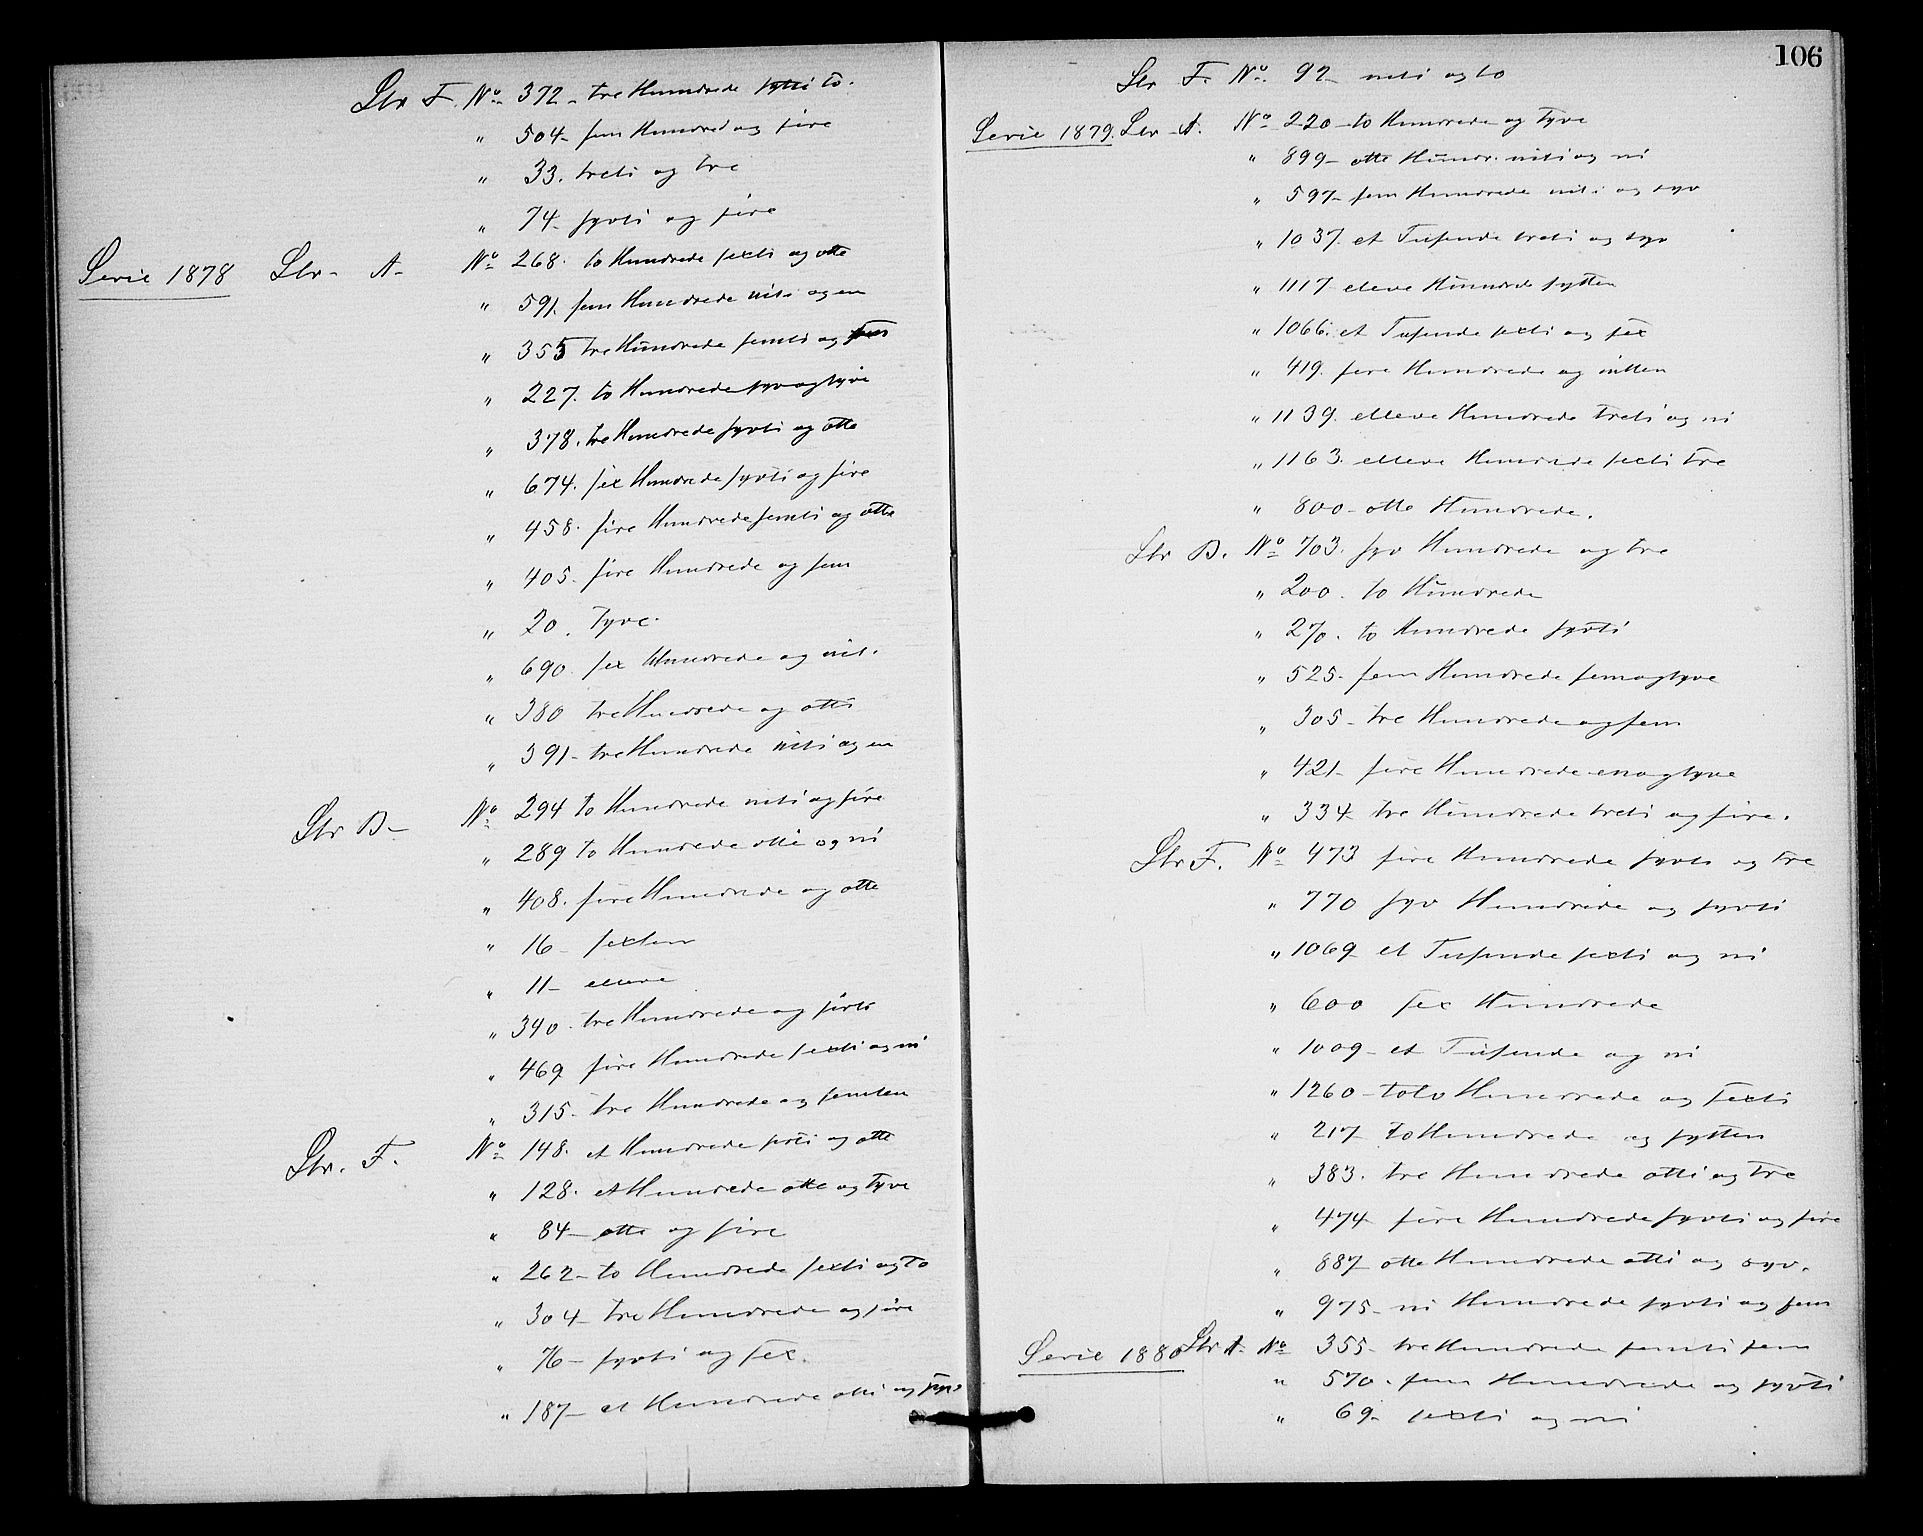 Ltr F. No 372 - tre Hundrede sytti to.
" 504 - fem Hundred og fire
" 33. treti og tre
" 74 - sytti og fire
Serie 1878 Ltr - A - No 268. to Hundrede sexti og otte
" 591. fem Hundrede niti og en
" 355 tre Hundrede femti og fem
" 227. to Hundrede syv og tyve
" 378. tre Hundrede sytti og otte
" 674. sex Hundrede sytti og fire
" 458. fire Hundrede femti og otte
" 405. fire Hundrede og fem
" 20. Tyve.
" 690. sex Hundrede og niti.
" 380 tre Hundrede og otti
" 391 - tre Hundrede niti og en
Ltr B - No 294 to Hundrede niti og fire
" 289 to Hundrede otti og ni
" 408. fire Hundrede og otte
" 16 - sexten
" 11 - elleve
" 340. tre Hundrede og firti
" 469 fire Hundrede sexti og ni
" 315 - tre Hundrede og femten
Ltr. F. No 148. et Hundrede firti og otte
" 128. et Hundrede otte og Tyve
" 84 - otte og fire
" 262 - to Hundrede sexti og to
" 304 - tre Hundrede og fire
" 76 - sytti og sex.
" 187 - et Hundrede otti og syv.
106
Ltr F. No. 92 - niti og to
Serie 1879. Ltr - A. No 220 - to Hundrede og Tyve
" 899 - otte Hundr. niti og ni
" 597 - fem Hundrede niti og syv
" 1037. et Tusende treti og syv
" 1117 eleve Hundrede sytten
" 1066. et Tusende sexti og sex
" 419. fire Hundrede og nitten
" 1139. elleve Hundrede treti og ni
" 1163. elleve Hundrede sexti tre
" 800 - otte Hundrede.
Ltr B. No 703. syv Hundrede og tre
" 200. to Hundrede
" 270. to Hundrede sytti
" 525. fem Hundrede femogtyve
" 305 - tre Hundrede og fem
" 421 - fire Hundrede enogtyve
" 334 tre Hundrede treti og fire.
Ltr F. No 473 fire Hundrede sytti og tre
" 770 syv Hundrede og sytti
" 1069 et Tusende sexti og ni
" 600 sex Hundrede
" 1009 - et Tusende og ni
" 1260 - tolv Hundrede og sexti
" 217 to Hundrede og sytten
" 383. tre Hundrede otti og tre
" 474 fire Hundrede sytti og fire
" 887 otte Hundrede otti og syv.
" 975 - ni Hundrede sytti og fem
Serie 1880 Ltr A - No 355 - tre Hundrede femti fem
" 570. fem Hundrede og sytti
" 69 - sexti og ni